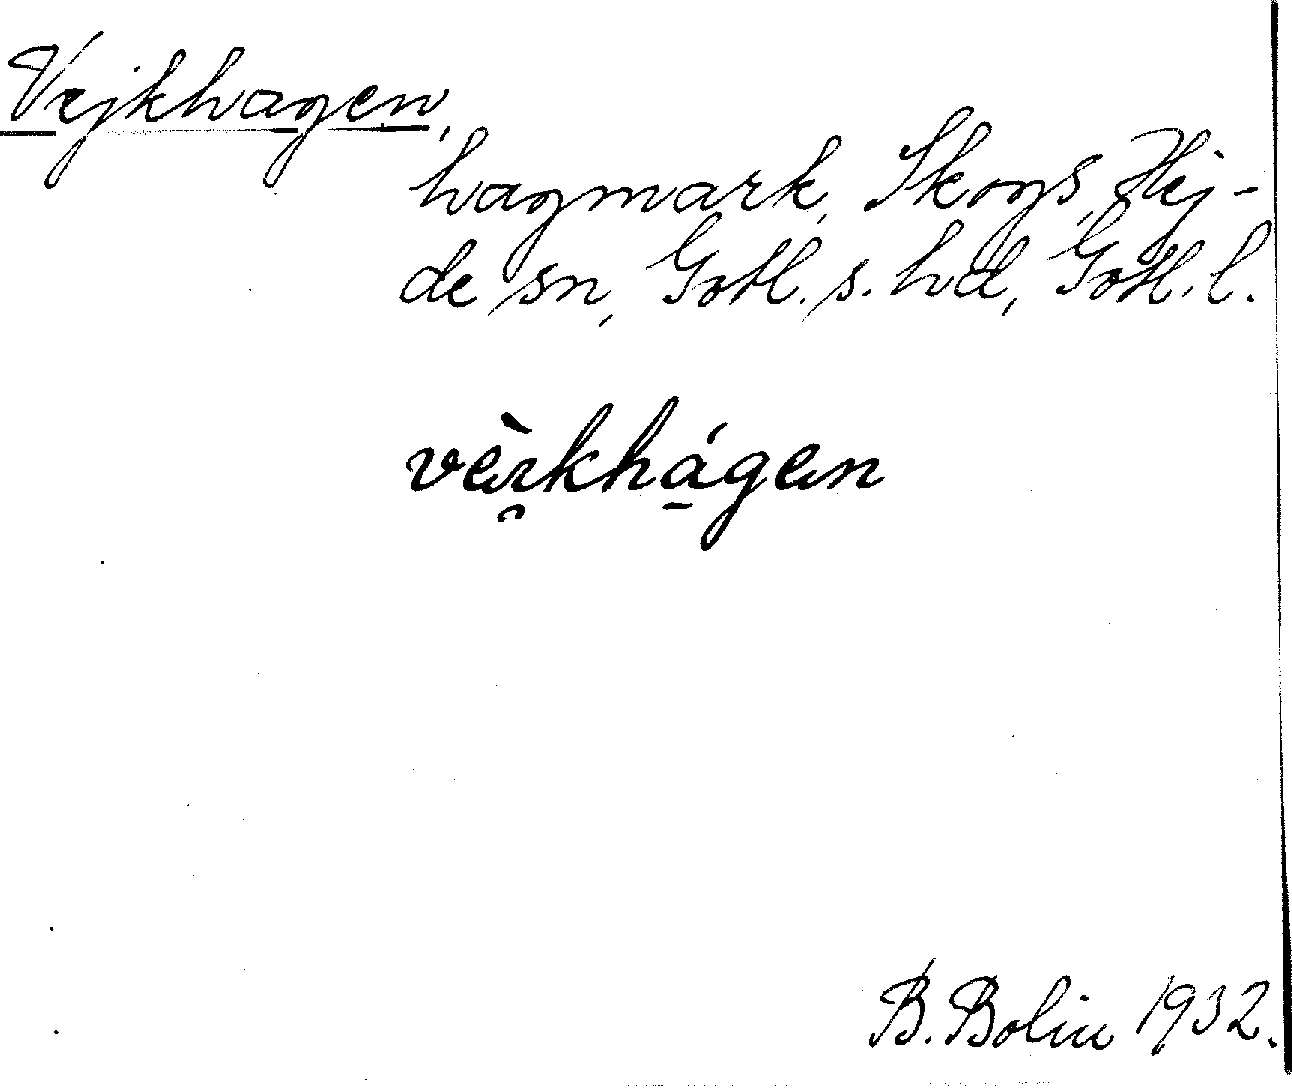 Vejkhagen,
hagmark, Skogs, Hej-
de sn, Gotl. s. hd, Gotl. l.
vèi̯khá̱gen
B. Bolin 1932.